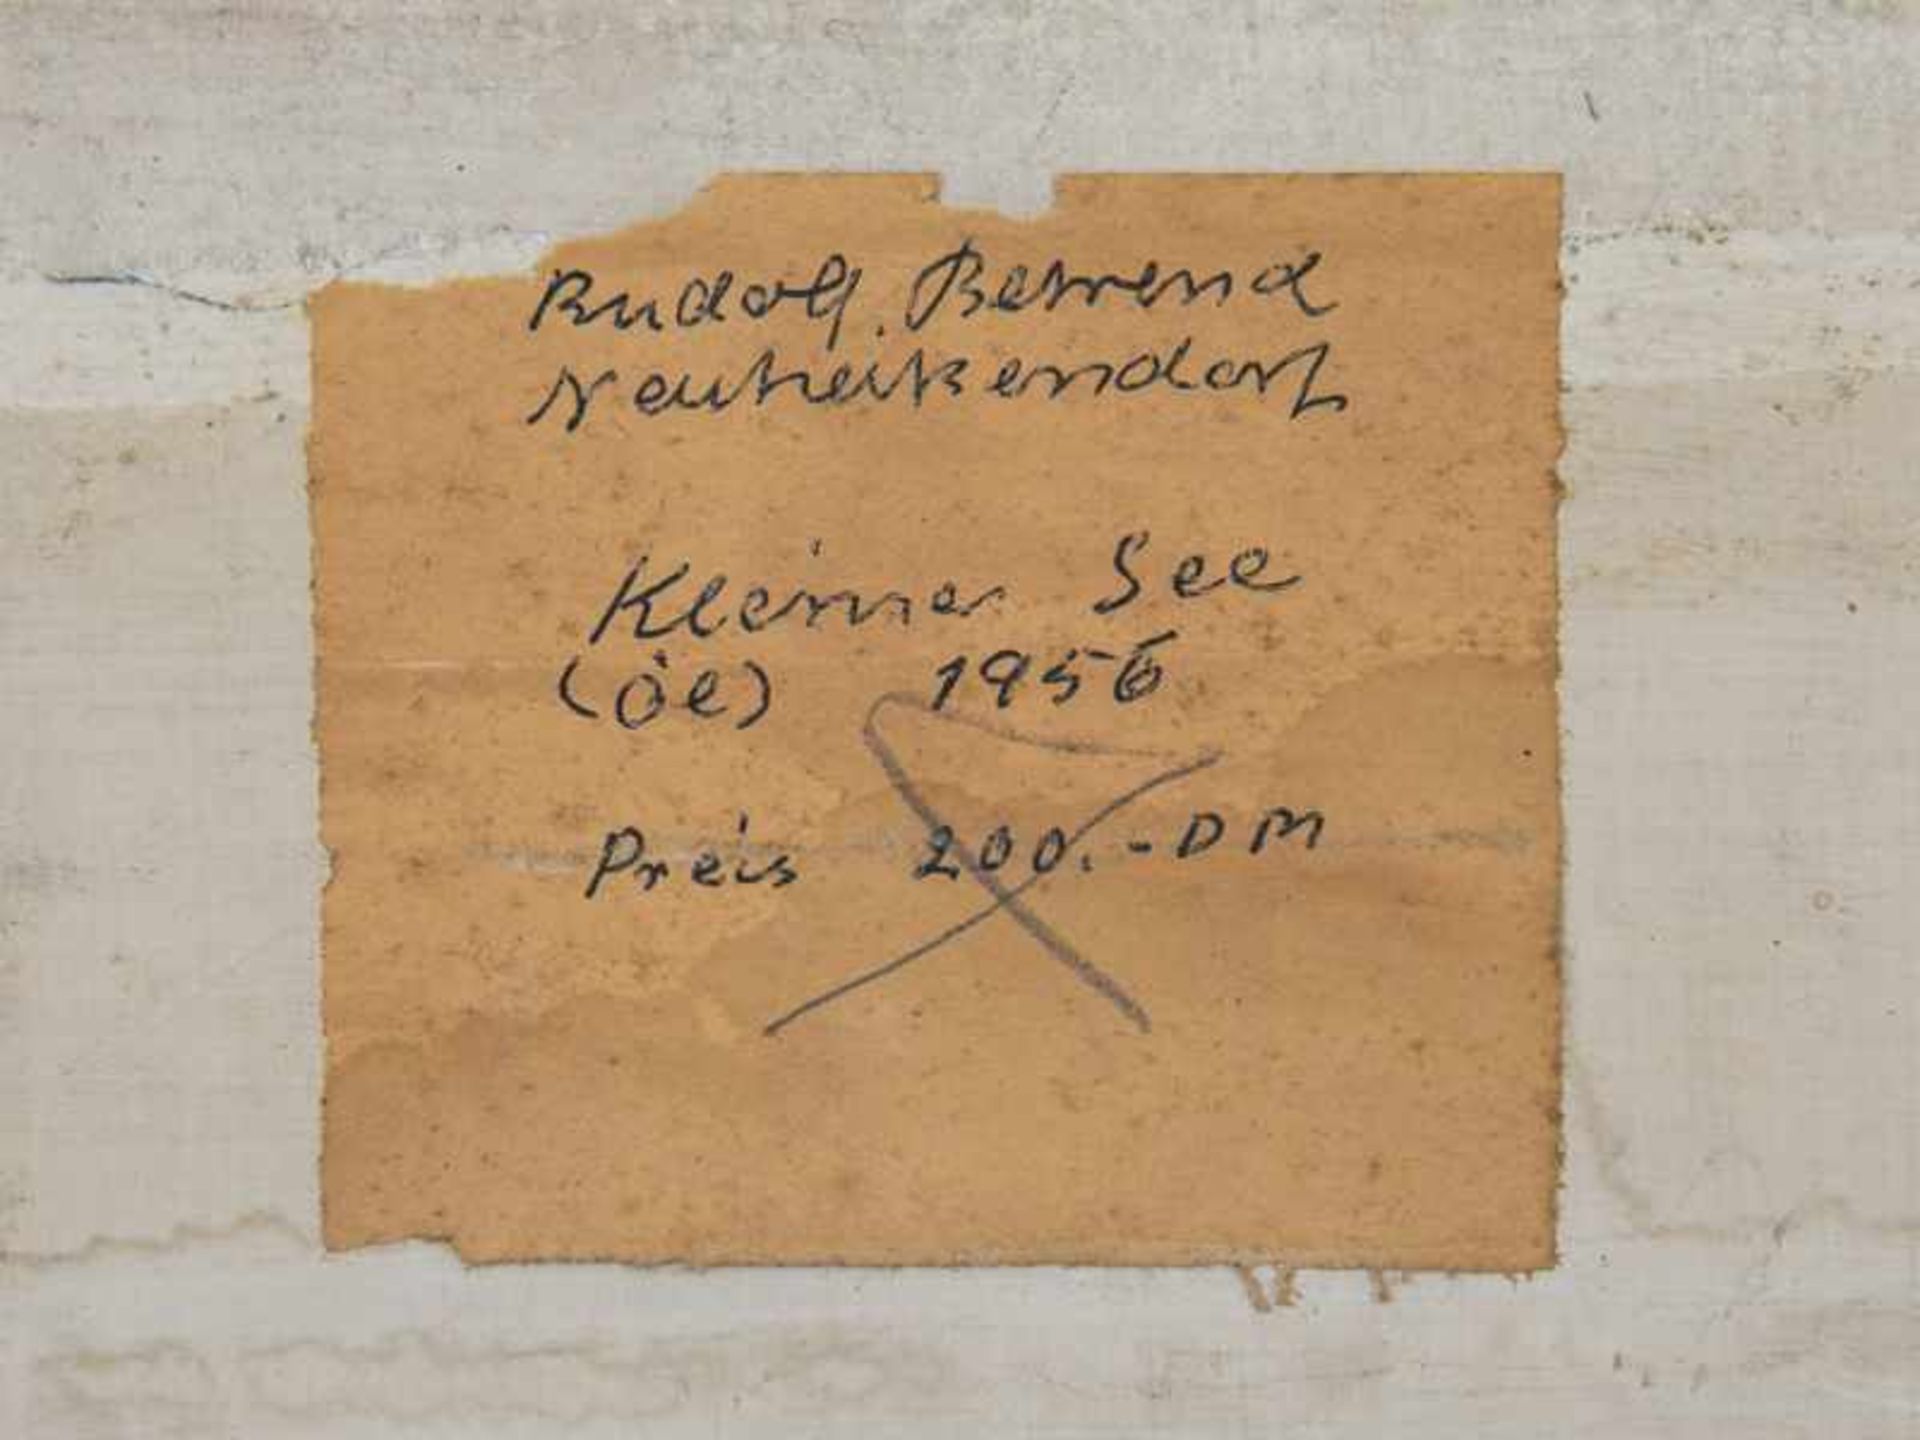 Rudolf Behrend
Neuheikendorf
Kleiner See
(Öl) 1956
Preis 200.-DM